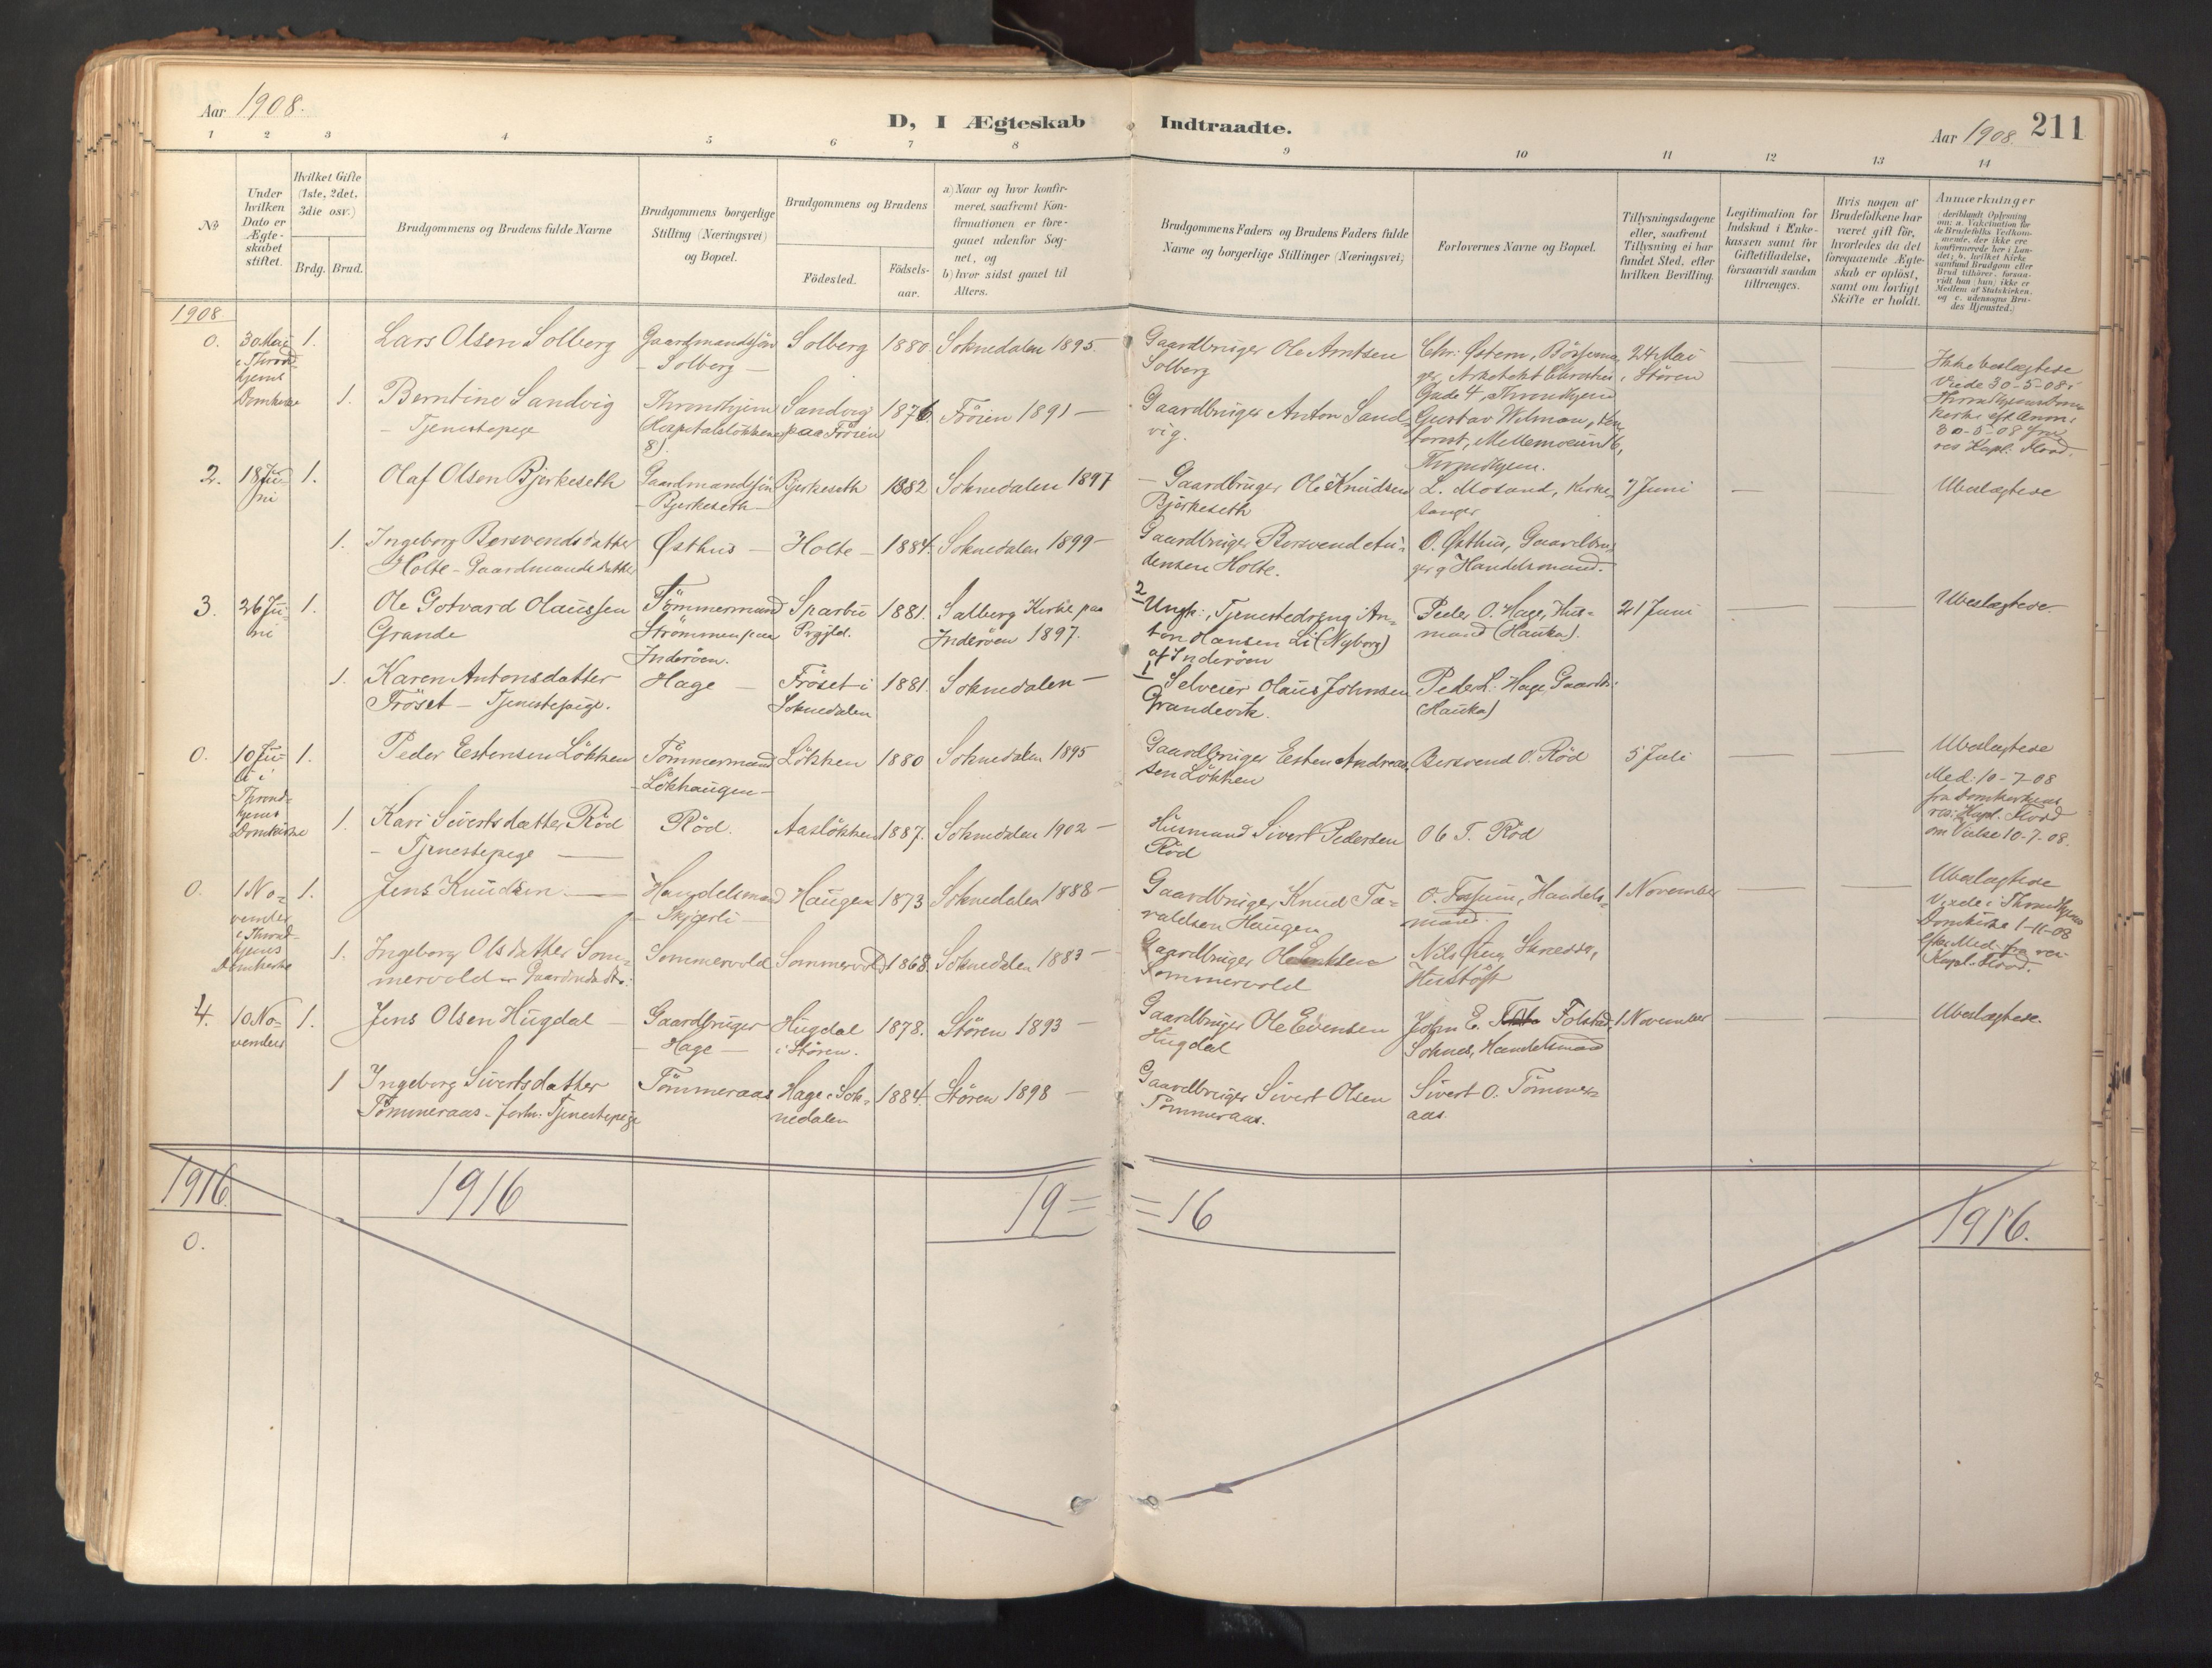 Aar 1908.
D, I Ægteskab Indtraadte.
Aar 1908. 211
1 2 3 4 5 6 7 8 9 10 11 12 13 14
No
Under hvilken Dato er Ægte-skabet stiftet.
Hvilket Gifte (1ste, 2det, 3die osv.)
Brdg. Brud.
Brudgommens og Brudens fulde Navne
Brudgommens borgerlige Stilling (Næringsvei) og Bopæl.
Brudgommens og Brudens
Födested.
Födsels-aar.
a) Naar og hvor konfir-meret, saafremt Kon-firmationen er fore-gaaet udenfor Sog-net, og
b) hvor sidst gaaet til Alters.
Brudgommens Faders og Brudens Faders fulde Navne og borgerlige Stillinger (Næringsvei)
Forlovernes Navne og Bopæl.
Tillysningsdagene eller, saafremt Tillysning ei har fundet Sted, efter hvilken Bevilling.
Legitimation for Indskud i Enke-kassen samt for Giftetilladelse, forsaavidt saadan tiltrænges.
Hvis nogen af Brudefolkene har været gift för, hvorledes da det foregaaende Ægte-skab er oplöst, samt om lovligt Skifte er holdt.
Anmærkninger
(deriblandt Oplysning om: a. Vakcination for de Brudefolks Vedkom-mende, der ikke ere konfirmerede her i Lan-det; b. hvilket Kirke-samfund Brudgom eller Brud tilhörer, forsaa-vidt han (hun) ikke er Medlem af Statskirken, og c. udensogns Bru-des Hjemsted.)
1908
0. 30 Mai i Thrond-hjems Domkirke 1. Lars Olsen Solberg Gaardmandssön Solberg Solberg 1880 Soknedalen 1895. Gaardbruger Ole Arntsen Solberg Chr. Østern, Bössema-ger, Arkitekt Christies Gade 4, Throndhjem 24 Mai i Stören Ikke beslægtede Viede 30-5-08 i Throndhjems Dom-kirke eft. Anm. 30-5-08 fra res. Kapl. Flood.
1. Berntine Sandvig - Tjenestepige Throndhjem Hospitalslökkene 8). Sandvig paa Fröien 1876. Fröien 1891 - Gaardbruger Anton Sand-vig. Gustav Wilman, Mellemveien 16, Throndhjem.
2. 18 Ju-ni 1. Olaf Olsen Bjerkeseth Gaardmandssön - Bjerkeseth - Bjerkeseth 1882 Soknedalen 1897 - Gaardbruger Ole Knudsen Bjerkeseth L. Mosand, Kirke-sanger 7 Juni Ubeslægtede
1. Ingeborg Bersvendsdatter Holte - Gaardmandsdatter Østhus - Holte - 1884. Soknedalen 1899 - Gaardbruger Bersvend Au-densen Holte. O. Østhus, Gaardbru-ger og Handelsmand.
3. 26 Ju-ni 1. Ole Gotvard Olaussen Grande Tömmermand Strömmen paa Inderöen. Sparbu Prgjld. 1881. Salberg Kirke paa Inderöen 1897. 2 Ungk., Tjenestedreng An-ton Hansen Li (Nyborg) af Inderöen Peder O. Hage, Hus-mand (Hauka). 21 Juni Ubeslægtede.
1. Karen Antonsdatter Fröset - Tjenestepige. Hage - Fröset i Soknedalen 1881. Soknedalen - 1 Selveier Olaus Johnsen Grandevik. Peder L. Hage Gaardb. (Hauka)
0. 10 Ju-li i Thrond-hjems Domkirke 1. Peder Estensen Lökken Tömmermand - Lökhaugen - Lökken 1880 Soknedalen 1895 Gaardbruger Esten Andreas-sen Lökken Bersvend O. Röd 5 Juli Ubeslægtede Med. 10-7-08 fra Domkirkens res. Kapl. Flood om Vielse 10-7-08.
1. Kari Sivertsdatter Röd - Tjenestepige - Röd. Aaslökken 1887. Soknedalen 1902 - Husmand Sivert Pedersen Röd Ole T. Röd
0. 1 No-vember i Thrond-hjems Domkirke 1. Jens Knudsen - Handelsmand - Skjerli - Haugen 1873 Soknedalen 1888 - Gaardbruger Knud Ta-valdsen Haugen O. Fossum, Handels-mand. 1 November Ubeslægtede Viede i Throndhjems Domkirke 1-11-08 efter Med. fra res. Kapl. Flood.
1. Ingeborg Olsdatter Som-mervold - Gaardmdsdtr. Sommervold Sommervold 1868. Soknedalen 1883 - Gaardbruger Ole Sommervold Nils
4. 10 No-vember 1. Jens Olsen Hugdal - Gaardbruger - Hage - Hugdal i Stören. 1878. Stören 1893 - Gaardbruger Ole Evensen Hugdal John E. Folstad, Soknes, Handelsmand 1 November Ubeslægtede.
1 Ingeborg Sivertsdatter Tömmeraas - forh. Tjenestepige Tömmeraas Hage i Sok-nedalen 1884. Stören 1898 - Gaardbruger Sivert Olsen Tömmeraas. Sivert O. Tömmer-aas.
1916. 1916 19= =16 1916.
0.